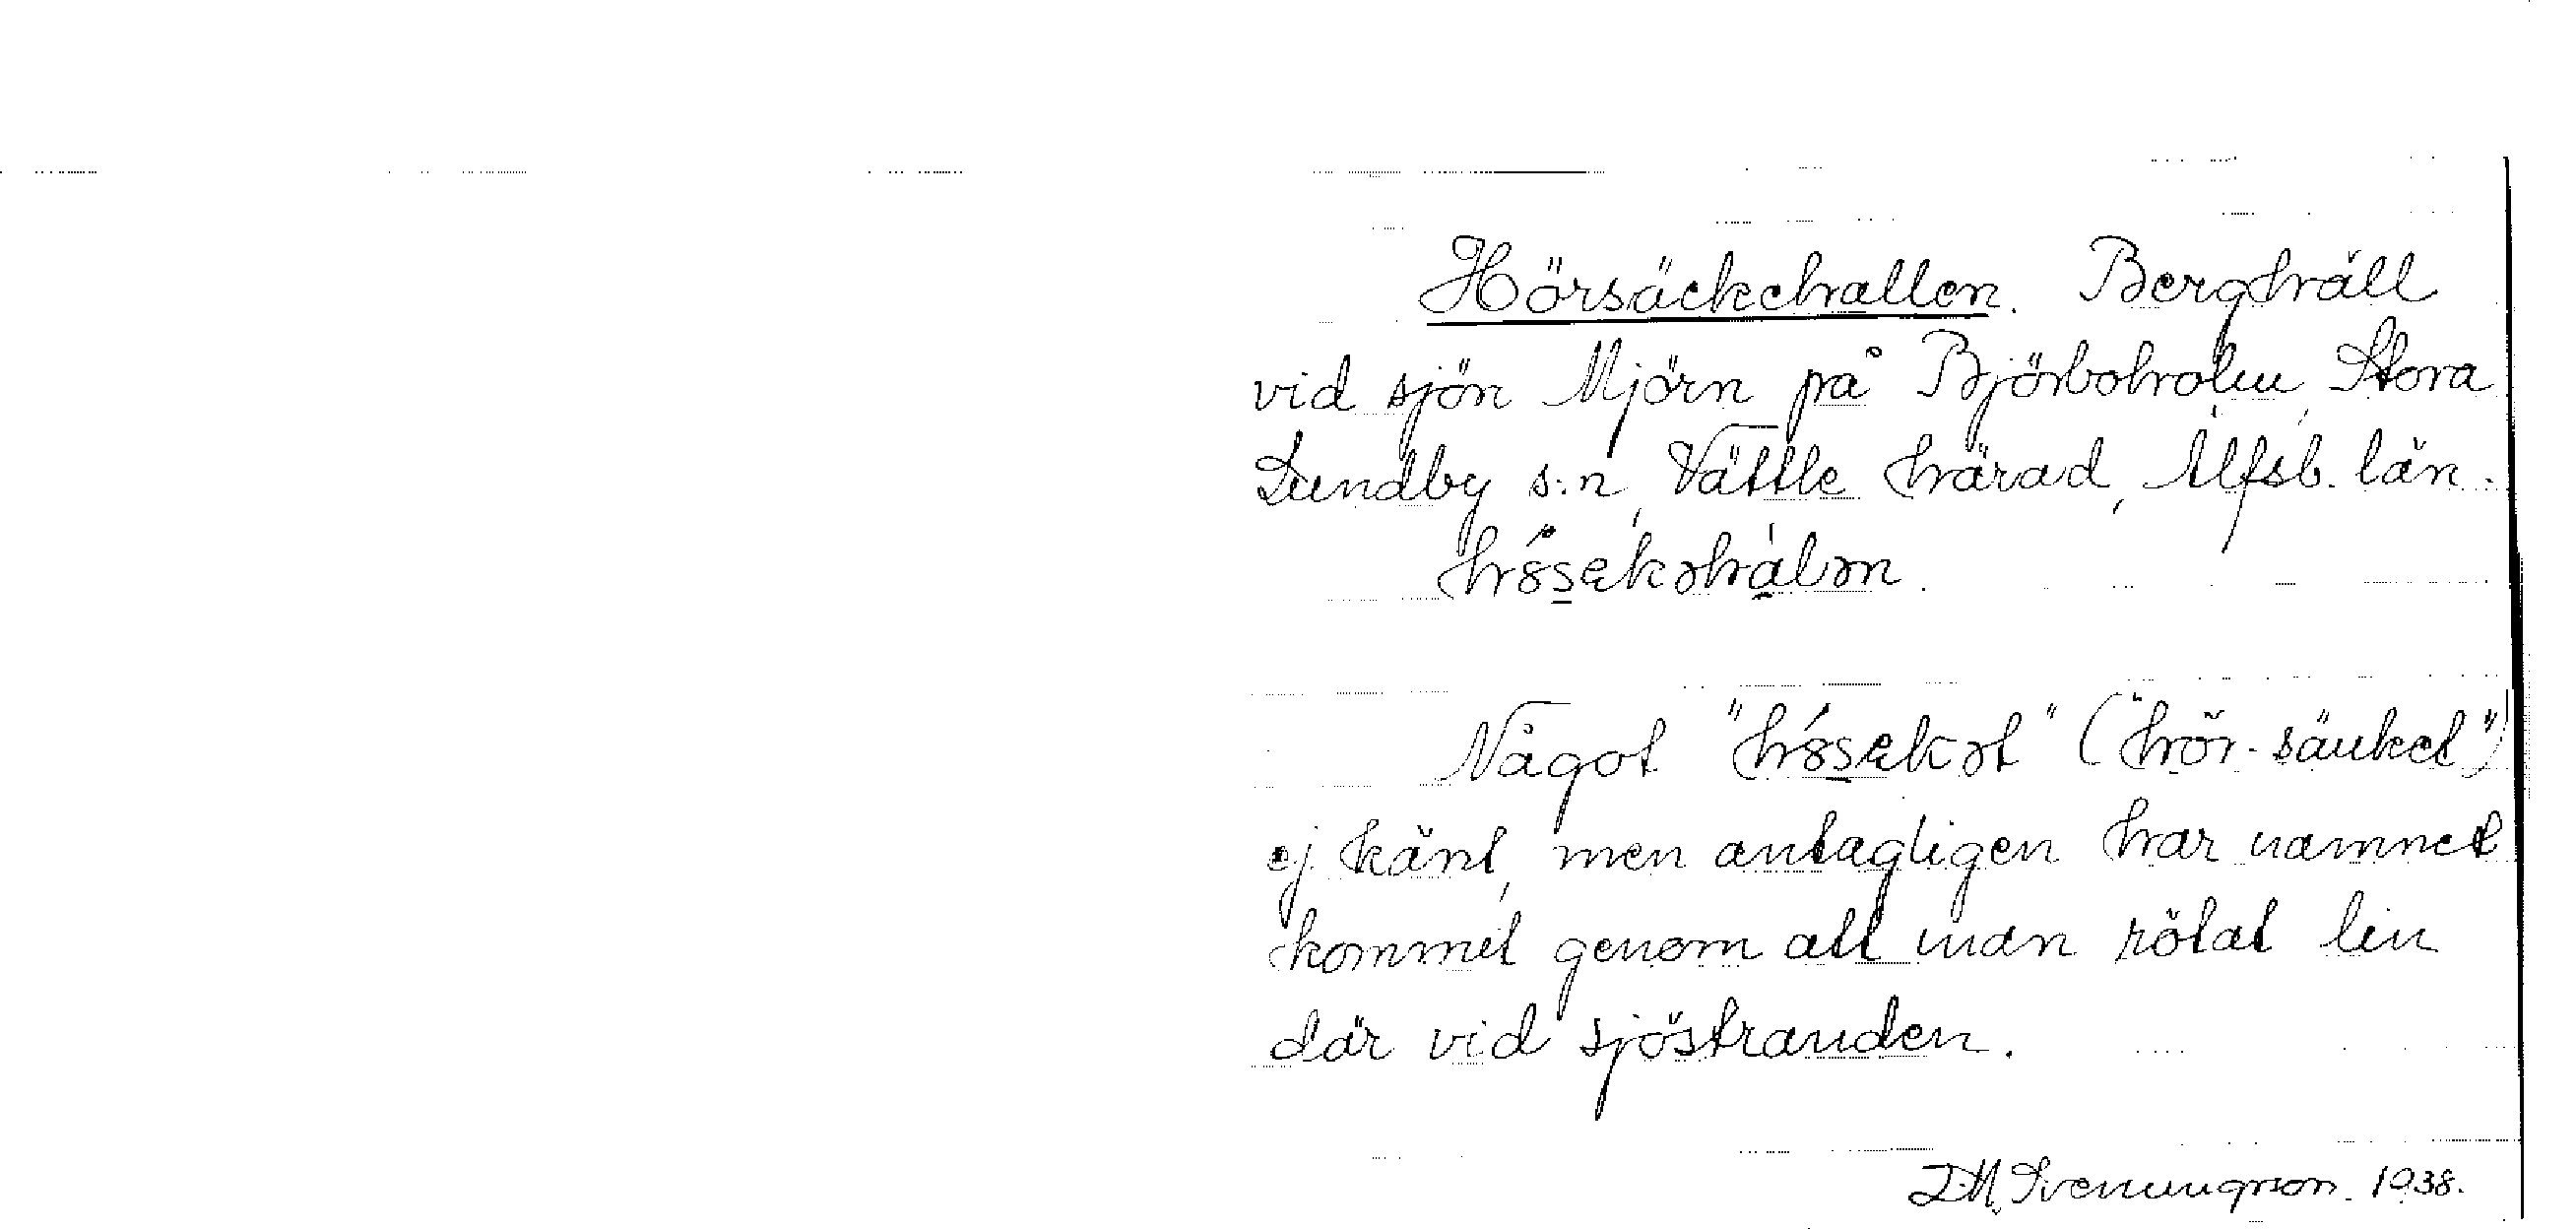 Hörsäckehallen. Berghäll
vid sjön Mjörn på Björboholm, Stora
Lundby s:n, Vättle härad, Älfsb. län.
Något "          " ("hör-sänket")
ej känt, men antagligen har namnet
kommit genom att man rötat lin
där vid sjöstranden.
D.M. Svenungsson. 1938.